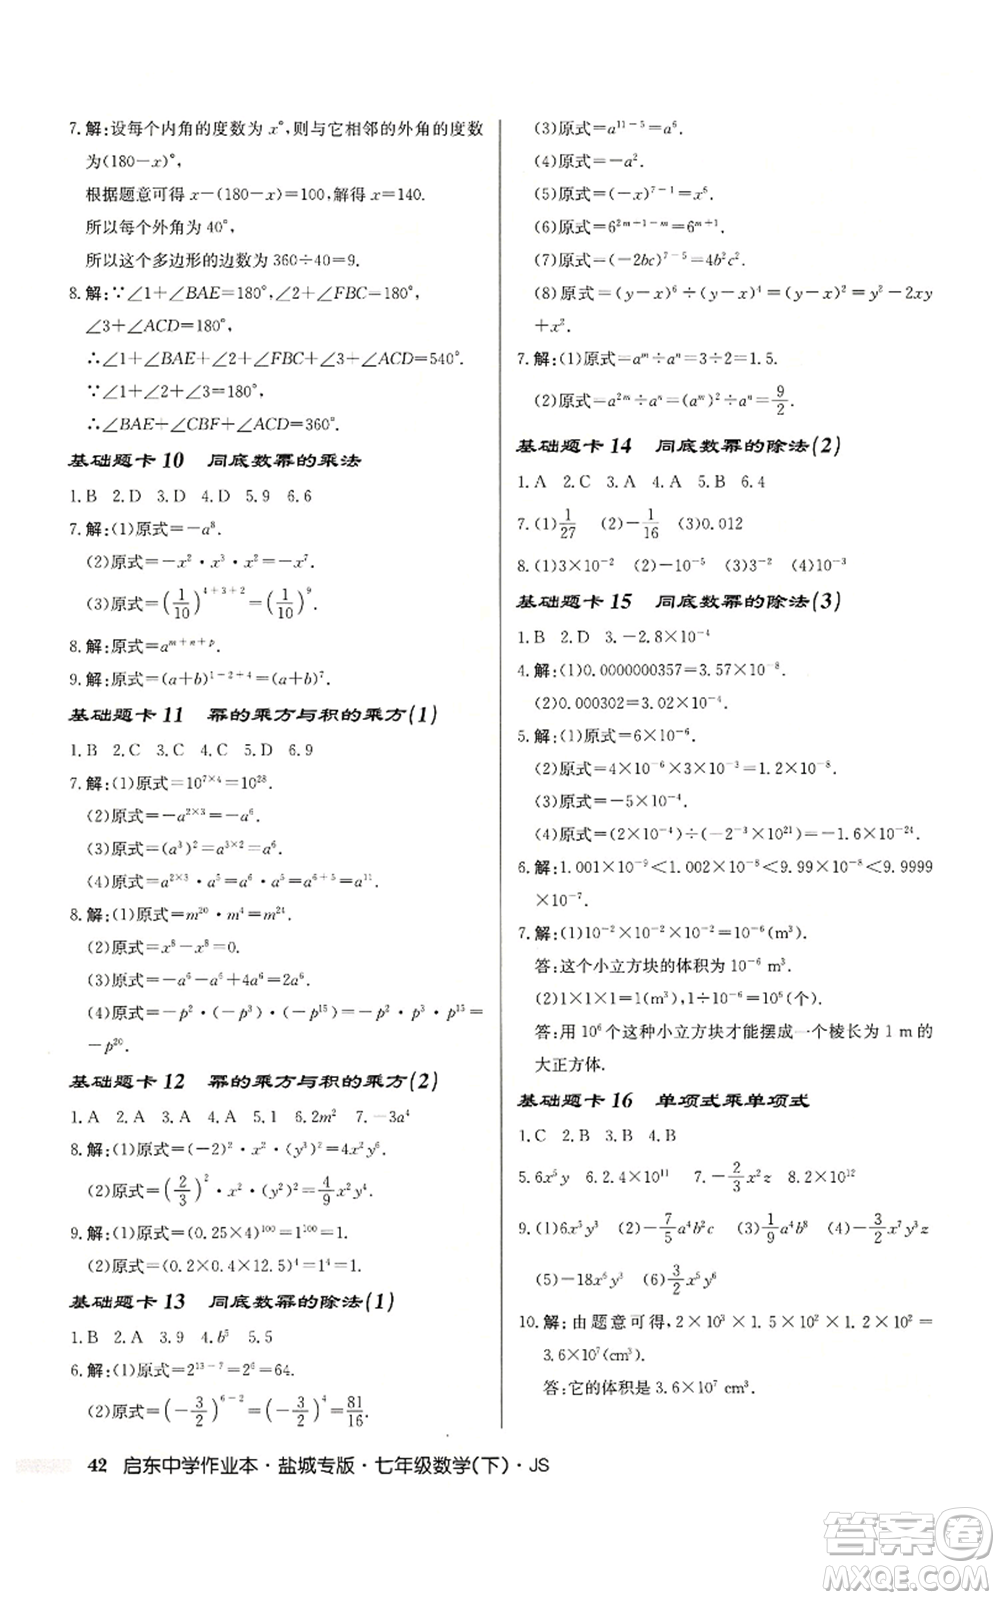 7.解:设每个内角的度数为 x°,则与它相邻的外角的度数
为(180－x)°,
根据题意可得 x－(180－x)=100,解得 x=140.
所以每个外角为 40°,
所以这个多边形的边数为 360÷40=9.
8.解:∵∠1+∠BAE=180°,∠2+∠FBC=180°,
∠3+∠ACD=180°,
∴∠1+∠BAE+∠2+∠FBC+∠3+∠ACD=540°.
∵∠1+∠2+∠3=180°,
∴∠BAE+∠CBF+∠ACD=360°.
基础题卡 10 同底数幂的乘法
1.B 2.D 3.D 4.D 5.9 6.6
7.解:(1)原式=－a⁸.
(2)原式=－x²·x³·x²=－x⁷.
(3)原式=(1/10)⁴⁺³⁺²=(1/10)⁹.
8.解:原式=a^(m+n+p).
9.解:原式=(a+b)¹⁻²⁺⁴=(a+b)³.
基础题卡 11 幂的乘方与积的乘方(1)
1.B 2.C 3.C 4.C 5.D 6.9
7.解:(1)原式=10^(7×4)=10²⁸.
(2)原式=－a^(2×3)=－a⁶.
(3)原式=(a³)²=a^(3×2)=a⁶.
(4)原式=a^(2×3)·a⁵=a⁶·a⁵=a⁶⁺⁵=a¹¹.
8.解:(1)原式=m²⁰·m⁴=m²⁴.
(2)原式=x⁸－x⁸=0.
(3)原式=－a⁶－a⁶+4a⁶=2a⁶.
(4)原式=－p²·(－p³)·(－p¹⁵)=p²·p³·(－p¹⁵)=
－p²⁰.
基础题卡 12 幂的乘方与积的乘方(2)
1.A 2.A 3.A 4.A 5.1 6.2m² 7.－3a⁴
8.解:(1)原式=(－2)²·x²·(y³)²=4x²y⁶.
(2)原式=(2/3)²·x²·(y²)²=4/9x²y⁴.
9.解:(1)原式=(0.25×4)¹⁰⁰=1¹⁰⁰=1.
(2)原式=(0.2×0.4×12.5)⁴=1⁴=1.
基础题卡 13 同底数幂的除法(1)
1.B 2.A 3.9 4.b⁵ 5.5
6.解:(1)原式=2¹³⁻⁷=2⁶=64.
(2)原式=(－3/2)⁶⁻²=(－3/2)⁴=81/16.
(3)原式=a¹¹⁻⁵=a⁶.
(4)原式=－a².
(5)原式=(－x)⁷⁻¹=x⁶.
(6)原式=6^(2m+1－m)=6^(m+1).
(7)原式=(－2bc)⁷⁻⁵=4b²c².
(8)原式=(y－x)⁶÷(y－x)⁴=(y－x)²=y²－2xy
+x².
7.解:(1)原式=a^m÷a^n=3÷2=1.5.
(2)原式=a^(2m)÷a^n=(a^m)²÷a^n=9/2.
基础题卡 14 同底数幂的除法(2)
1.A 2.C 3.A 4.A 5.A 6.4
7.(1)1/27 (2)－1/16 (3)0.012
8.(1)3×10⁻² (2)10⁻⁵ (3)3⁻² (4)10⁻³
基础题卡 15 同底数幂的除法(3)
1.B 2.D 3.－2.8×10⁻⁴
4.解:(1)0.0000000357=3.57×10⁻⁸.
(2)0.000302=3.02×10⁻⁴.
5.解:(1)原式=6×10⁻⁶.
(2)原式=4×10⁻⁶×3×10⁻³=1.2×10⁻⁸.
(3)原式=－5×10⁻⁴.
(4)原式=(2×10⁻⁴)÷(－2⁻³×10²¹)=－1.6×10⁻²⁴.
6.解:1.001×10⁻⁹<1.002×10⁻⁸<9.99×10⁻⁸<9.9999
×10⁻⁷.
7.解:(1)10⁻²×10⁻²×10⁻²=10⁻⁶(m³).
答:这个小立方块的体积为 10⁻⁶ m³.
(2)1×1×1=1(m³),1÷10⁻⁶=10⁶(个).
答:用 10⁶ 个这种小立方块才能摆成一个棱长为 1 m 的
大正方体.
基础题卡 16 单项式乘单项式
1.C 2.B 3.B 4.B
5.6x⁵y 6.2.4×10¹¹ 7.－2/3x²z 8.2×10¹²
9.(1)6x⁵y³ (2)－7/5a⁴b²c (3)1/9a⁴b⁸ (4)－3/2x⁷y³z
(5)－18x⁵y³ (6)3/2x⁵y⁵
10.解:由题意可得,2×10³×1.5×10²×1.2×10²=
3.6×10⁷(cm³).
答:它的体积是 3.6×10⁷ cm³.
42 启东中学作业本·盐城专版·七年级数学(下)·JS
答案圈
MXQE.COM